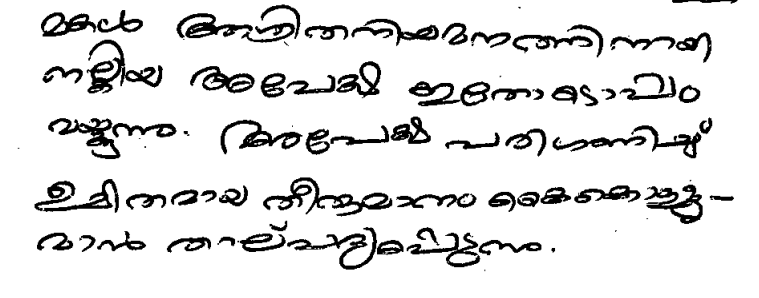 മകൾ ആശ്രിതനിയമനത്തിന്നായി
നല്കിയ അപേക്ഷ ഇതോടൊപ്പം
വയ്ക്കുന്നു. അപേക്ഷ പരിഗണിച്ച്
ഉചിതമായ തീരുമാനം കൈകൊള്ളു-
വാൻ താല്പര്യപ്പെടുന്നു.